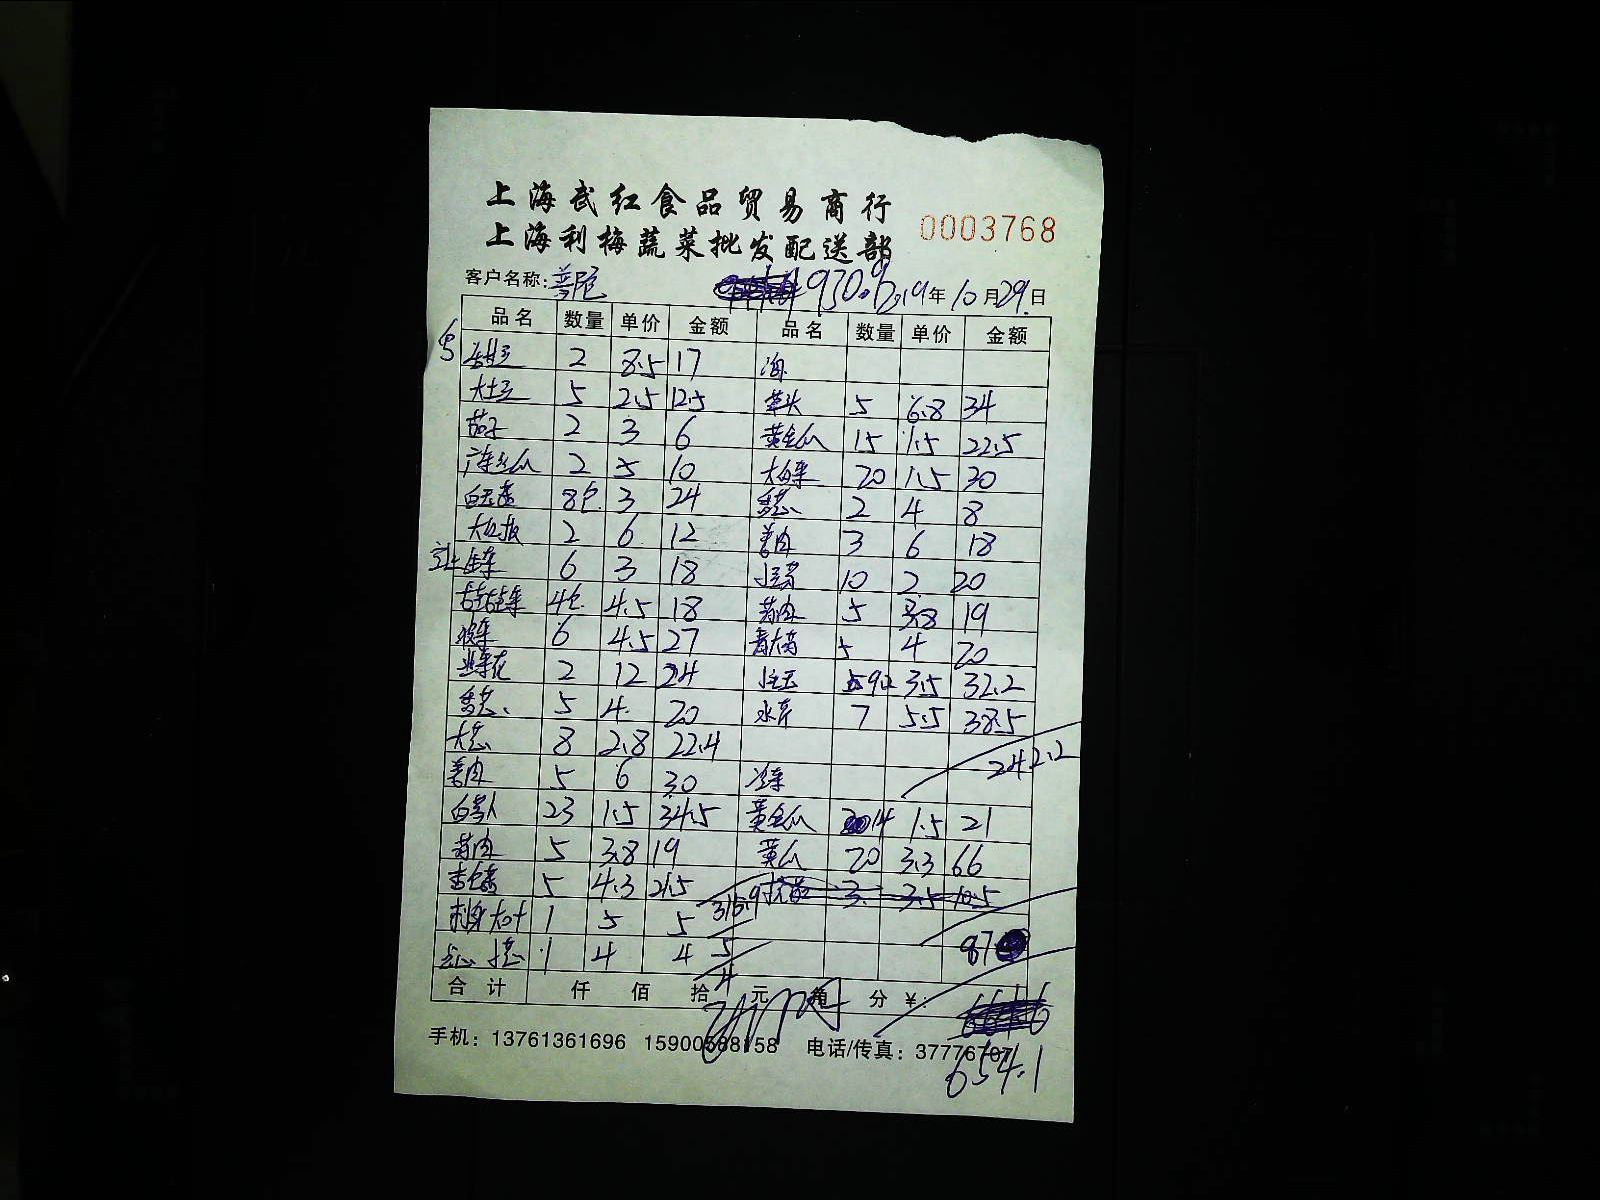 上海武红食品贸易商行
上海利梅蔬菜批发配送部
0003768
客户名称: 930.6 19年10月29日
品名 数量 单价 金额 品名 数量 单价 金额
2 8.5 17
大土豆 5 2.5 12.5 草头 5 6.8 34
茄子 2 3 6 黄金瓜 15 1.5 22.5
2 5 10 大白菜 20 1.5 30
白玉菇 8包 3 24 香葱 2 4 8
大红椒 2 6 12 姜肉 3 6 18
生菜 6 3 18 10 2 20
4包 4.5 18 5 3.8 19
6 4.5 27 5 4 20
韭菜花 2 12 24 9.2 3.5 32.2
香葱 5 4 20 水芹 7 5.5 38.5
大葱 8 2.8 22.4
242.2
姜肉 5 6 30 冷菜
白萝卜 23 1.5 34.5 黄金瓜 14 1.5 21
5 3.8 19 黄瓜 20 3.3 66
5 4.3 21.5 3 3.5 10.5
刺身 大叶 1 5 5 315.9
87
1 4 4 5
4
合计 仟 佰 拾 元 角 分 ¥:
手机: 13761361696 15900588158 电话/传真: 37776707
654.1